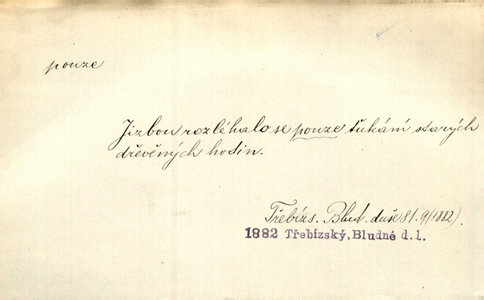 pouze
Jizbou rozléhalo se pouze ťukání starých
dřevěných hodin.
Třebízs. Blud. duše 81. 9/(1882).
1882 Třebízský, Bludné d.1.